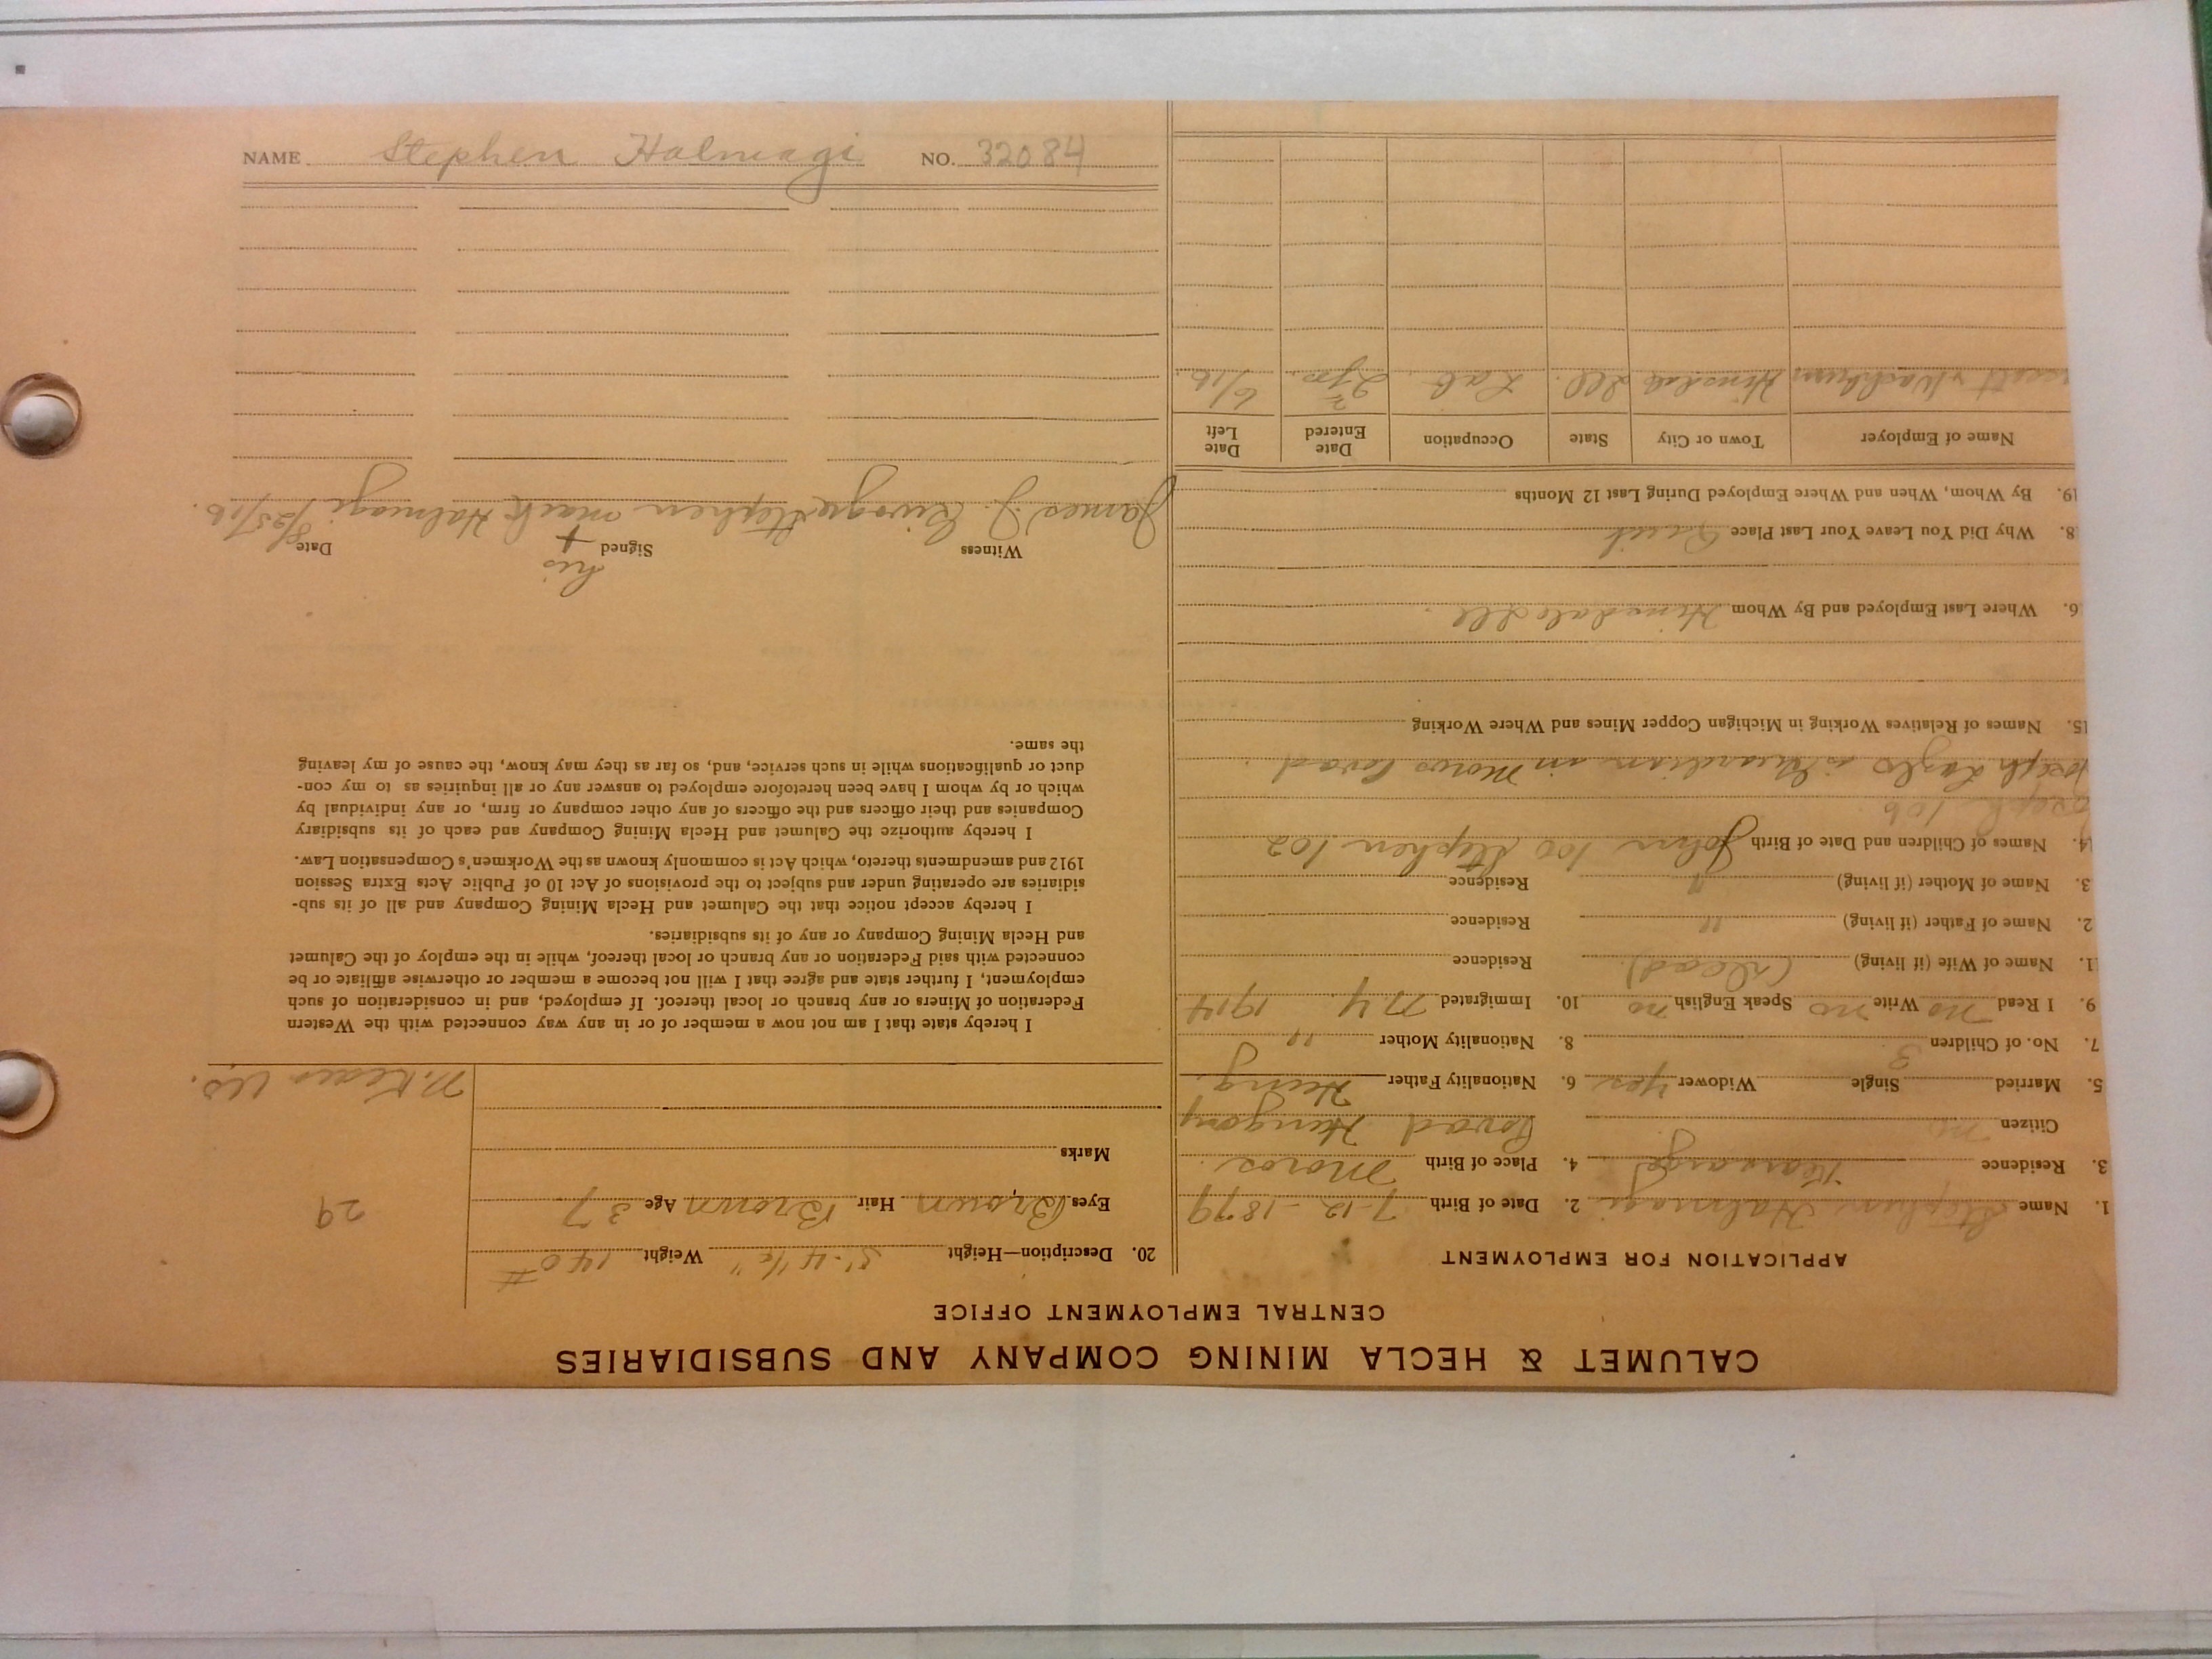 CALUMET & HECLA MINING COMPANY AND SUBSIDIARIES
CENTRAL EMPLOYMENT OFFICE
APPLICATION FOR EMPLOYMENT
1. Name Stephen Halmagi 2. Date of Birth 7-12-1879
3. Residence Kearsarge 4. Place of Birth Moros
Citizen no Hungary
5. Married Single Widower yes 6. Nationality Father Hung.
7. No. of Children 3 8. Nationality Mother "
9. I Read no Write no Speak English no 10. Immigrated N Y 1914
1. Name of Wife (if living) (dead) Residence
2. Name of Father (if living) " Residence
3. Name of Mother (if living) " Residence
14. Names of Children and Date of Birth John 100 Stephen 102
106
Joseph is Guardian in Moros
15. Names of Relatives Working in Michigan Copper Mines and Where Working
6. Where Last Employed and By Whom Hinsdale Ill
8. Why Did You Leave Your Last Place Quit
19. By Whom, When and Where Employed During Last 12 Months
Name of Employer Town or City State Occupation Date Entered Date Left
Hinsdale Ill. Lab. 2 yrs. 6/16.
20. Description—Height 5'-4 Weight 140 #
Eyes Brown Hair Brown Age 37
29
Marks
I hereby state that I am not now a member of or in any way connected with the Western
Federation of Miners or any branch or local thereof. If employed, and in consideration of such
employment, I further state and agree that I will not become a member or otherwise affiliate or be
connected with said Federation or any branch or local thereof, while in the employ of the Calumet
and Hecla Mining Company or any of its subsidiaries.
I hereby accept notice that the Calumet and Hecla Mining Company and all of its sub-
sidiaries are operating under and subject to the provisions of Act 10 of Public Acts Extra Session
1912 and amendments thereto, which Act is commonly known as the Workmen's Compensation Law.
I hereby authorize the Calumet and Hecla Mining Company and each of its subsidiary
Companies and their officers and the officers of any other company or firm, or any individual by
which or by whom I have been heretofore employed to answer any or all inquiries as to my con-
duct or qualifications while in such service, and, so far as they may know, the cause of my leaving
the same.
his
Witness Signed + Date
James J. Stephen mark Halmagi 8/25/16.
NAME Stephen Halmagi NO. 32084